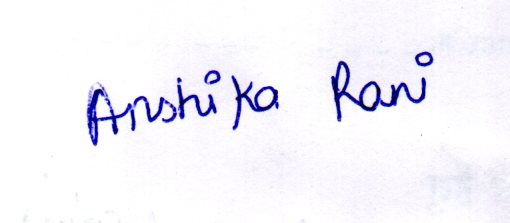 Anshika Rani